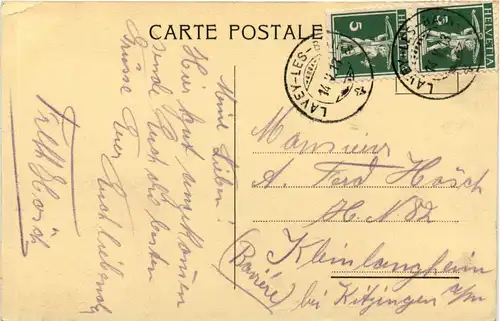 CARTE POSTALE
HELVETIA
5
HELVETIA
5
LAVEY-LES-
14.V
LAVEY-LES-
Meine Lieben!
Hier gut angekommen
sende Euch die besten
Grüsse Euer Euch liebender
Hösch
Monsieur
A. Ferd Hösch
H. N. 82
Kleinlangheim
(Bavière)
bei Kitzingen a/m